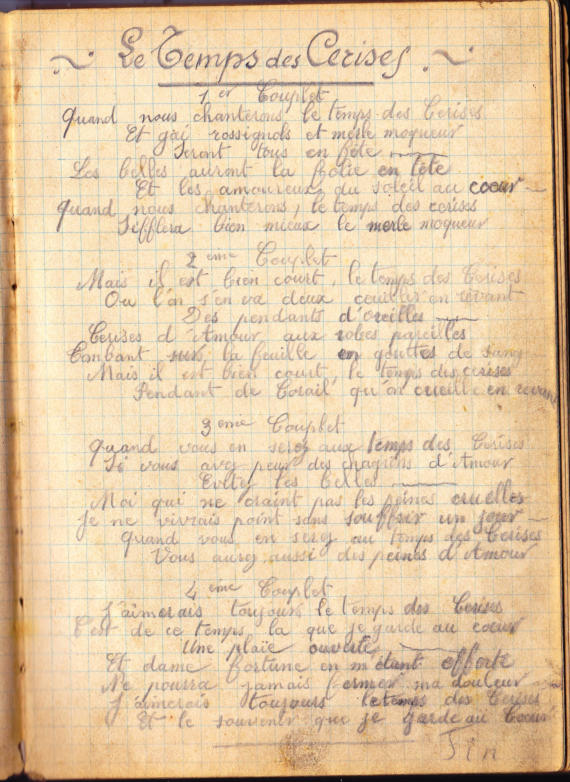 Le Temps des Cerises
1er Couplet
Quand nous chanterons le temps des Cerises
Et gai rossignols et merle moqueur
Seront tous en fête
Les belles auront la folie en tête
Et les amoureux du soleil au coeur
Quand nous chanterons, le temps des cerises
Sifflera bien mieux le merle moqueur
2eme Couplet
Mais il est bien court, le temps des Cerises
Ou l'on s'en va deux ceuillir en rêvant
Des pendants d'oreilles
Cerises d'Amour aux robes pareilles
Tombant sur la feuille en gouttes de sang
Mais il est bien court, le temps des cerises
Pendant de Corail, qu'on cueille en rêvant
3eme Couplet
Quand vous en serez aux temps des Cerises
Si vous avez peur des chagrins d'Amour
Evitez les belles
Moi qui ne craint pas les peines cruelles
Je ne vivrais point sans souffrir un jour
Quand vous en serez au temps des Cerises
Vous aurez aussi des peines d'Amour
4eme Couplet
J'aimerais toujours le temps des Cerises
C'est de ce temps la que je garde au coeur
Une plaie ouverte
Et dame fortune en m'étant offerte
Ne pourra jamais fermer ma douleur
J'aimerais toujours le temps des Cerises
Et le souvenir que je garde au Coeur
Fin